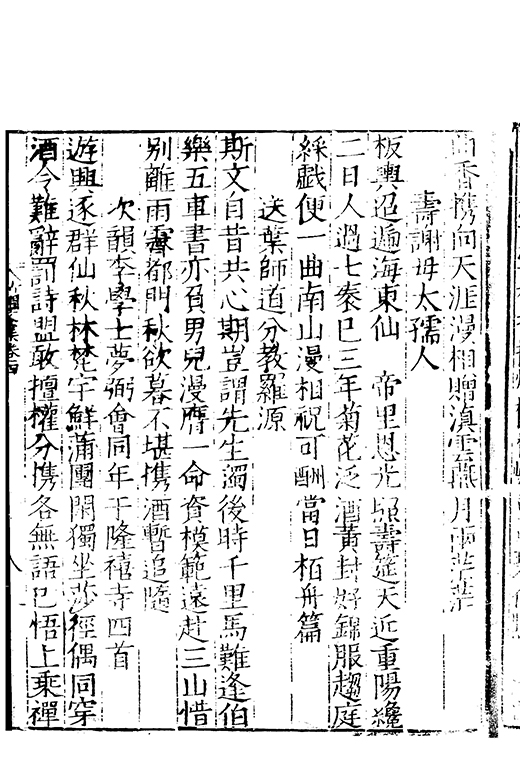 香携向天涯漫相贈滇雲燕月兩茫茫
壽謝母太孺人
板輿迎遍海東仙　帝里恩光照壽筵天近重陽纔
二日人過七秦巳三年菊花泛酒黃封好錦服趨庭
綵戱便一曲南山漫相祝可酬當日栢舟篇
送葉師道分教羅源
斯文自昔共心期豈謂先生濁後時千里馬難逢伯
樂五車書亦負男兒漫膺一命資模範遠赴三山惜
别離雨霽都門秋欲暮不堪携酒暫追隨
次韻李學士夢弼會同年于隆禧寺四首
遊興逐群仙秋林梵宇鮮蒲團閑獨坐莎徑偶同穿
酒令難辭罰詩盟敢擅權分携各無語巳悟上乘禪